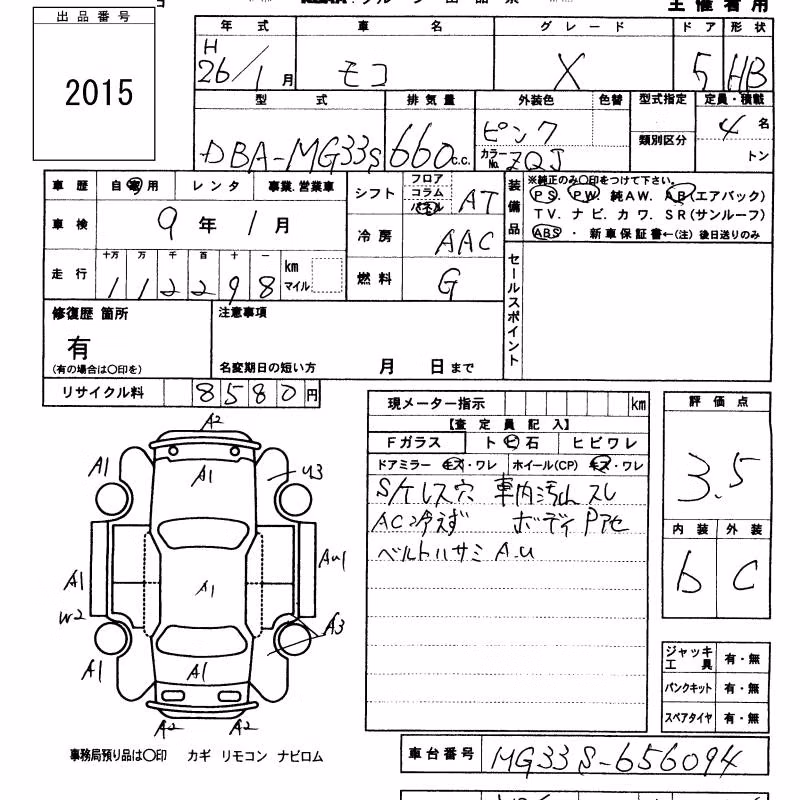 出品番号
2015
主催者用
年式 車名 グレード ドア 形状
H
26/1月 モコ X 5 HB
型式 排気量 外装色 色替 型式指定 定員・積載
DBA-MG33S 660c.c. ピンク 4名
カラーNo. ZQJ 類別区分 トン
車歴 自家用 レンタ 事業.営業車
車検 9年1月
走行 十万 万 千 百 十 一
112298 km マイル
シフト フロア コラム パネル AT
冷房 AAC
燃料 G
装備品 ※純正のみ〇印をつけて下さい。
PS. PW. 純AW. AB(エアバック)
TV. ナビ. カワ. SR(サンルーフ)
ABS ・ 新車保証書←(注) 後日送りのみ
セールスポイント
修復歴 箇所
有
(有の場合は〇印を)
注意事項
名変期日の短い方 月 日まで
リサイクル料 8580円
現メーター指示 km
【査定員記入】
Fガラス ト ビ 石 ヒビワレ
ドアミラー キズ・ワレ ホイール(CP) キズ・ワレ
S/ケレス穴 車内汚れ スレ
AC冷えず ボディ Pアセ
ベルトハサミ A.U
評価点
3.5
内装 外装
b C
ジャッキ工具 有・無
パンクキット 有・無
スペアタイヤ 有・無
A2
A1 A1 U3
A1 A1 AU1
W2 A3
A1 A1
A2 A2
事務局預り品は〇印 カギ リモコン ナビロム
車台番号 MG33S-656094